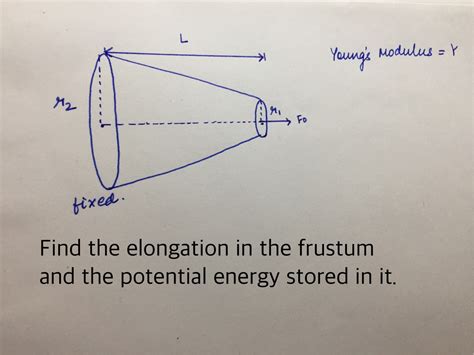 L
Young's Modulus = Y
r2
r1
F0
fixed.
Find the elongation in the frustum
and the potential energy stored in it.